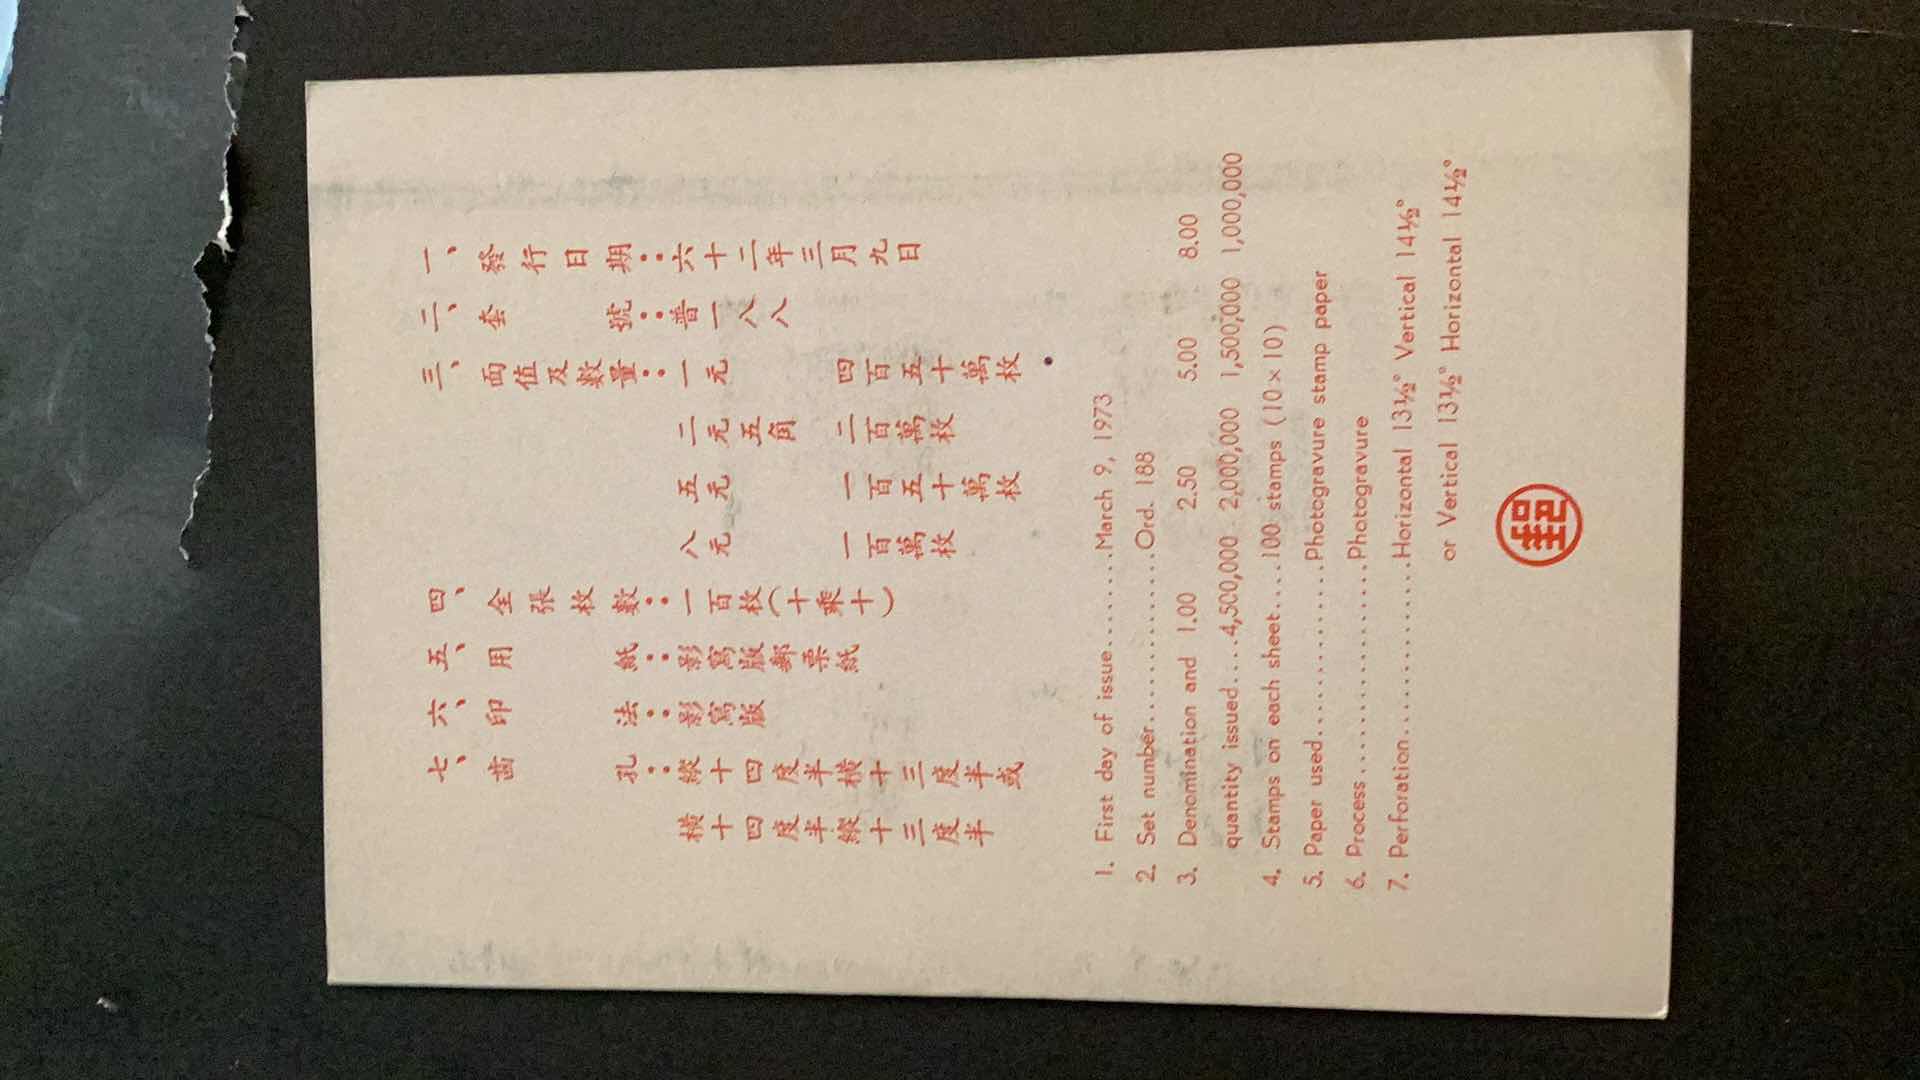 一、發行日期：六十二年三月九日
二、套號：普一八八
三、面值及數量：一元 四百五十萬枚
二元五角 二百萬枚
五元 一百五十萬枚
八元 一百萬枚
四、全張枚數：一百枚（十乘十）
五、用紙：影寫版郵票紙
六、印法：影寫版
七、齒孔：縱十四度半橫十三度半或
橫十四度半縱十三度半
1. First day of issue........March 9, 1973
2. Set number..............Ord. 188
3. Denomination and 1.00 2.50 5.00 8.00
quantity issued....4,500,000 2,000,000 1,500,000 1,000,000
4. Stamps on each sheet....100 stamps (10×10)
5. Paper used..............Photogravure stamp paper
6. Process.................Photogravure
7. Perforation..............Horizontal 13½° Vertical 14½°
or Vertical 13½° Horizontal 14½°
郵